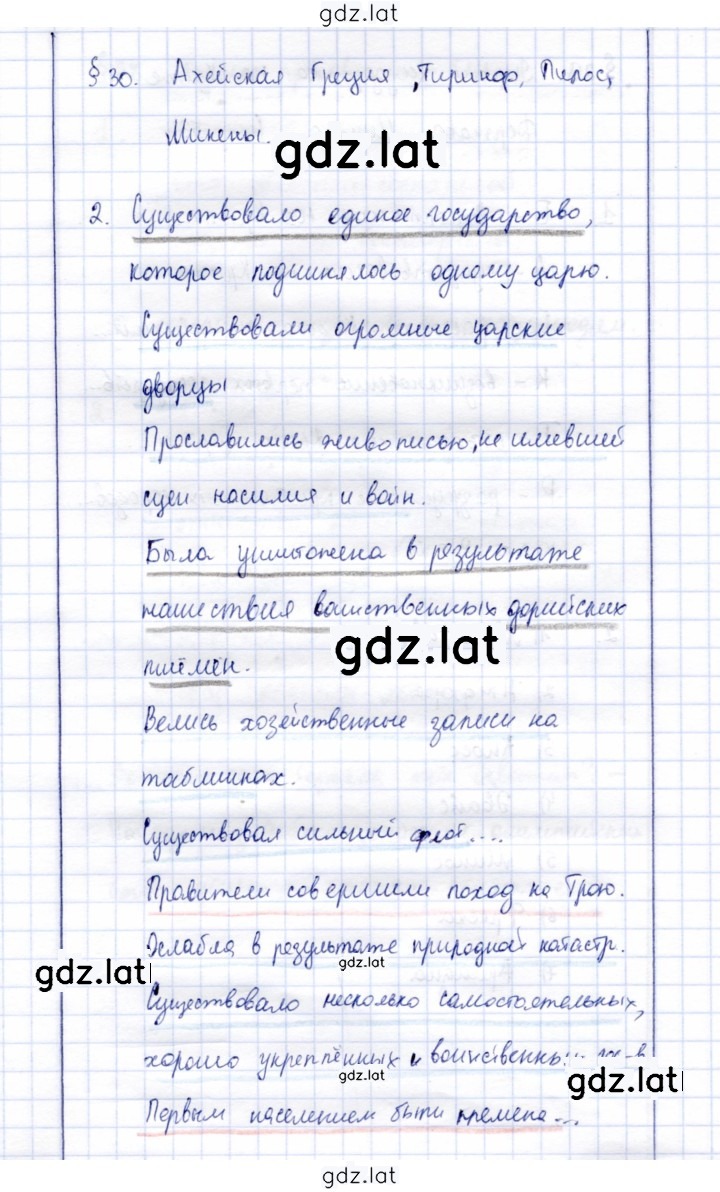 gdz.lat
§ 30. Ахейская Греция, Тиринф, Пилос,
Микены.
gdz.lat
2. Существовало единое государство,
которое подчинялось одному царю.
Существовали огромные царские
дворцы
Прославились живописью, не имевшей
сцен насилия и войн.
Была уничтожена в результате
нашествия воинственных дорийских
gdz.lat
племён.
Велись хозяйственные записи на
табличках.
Существовал сильный флот....
Правители совершили поход на Трою.
Ослабла в результате природной катастр.
gdz.lat
gdz.lat
Существовало несколько самостоятельных,
хорошо укреплённых и воинственны...
gdz.lat
gdz.lat
Первым населением были племена...
gdz.lat